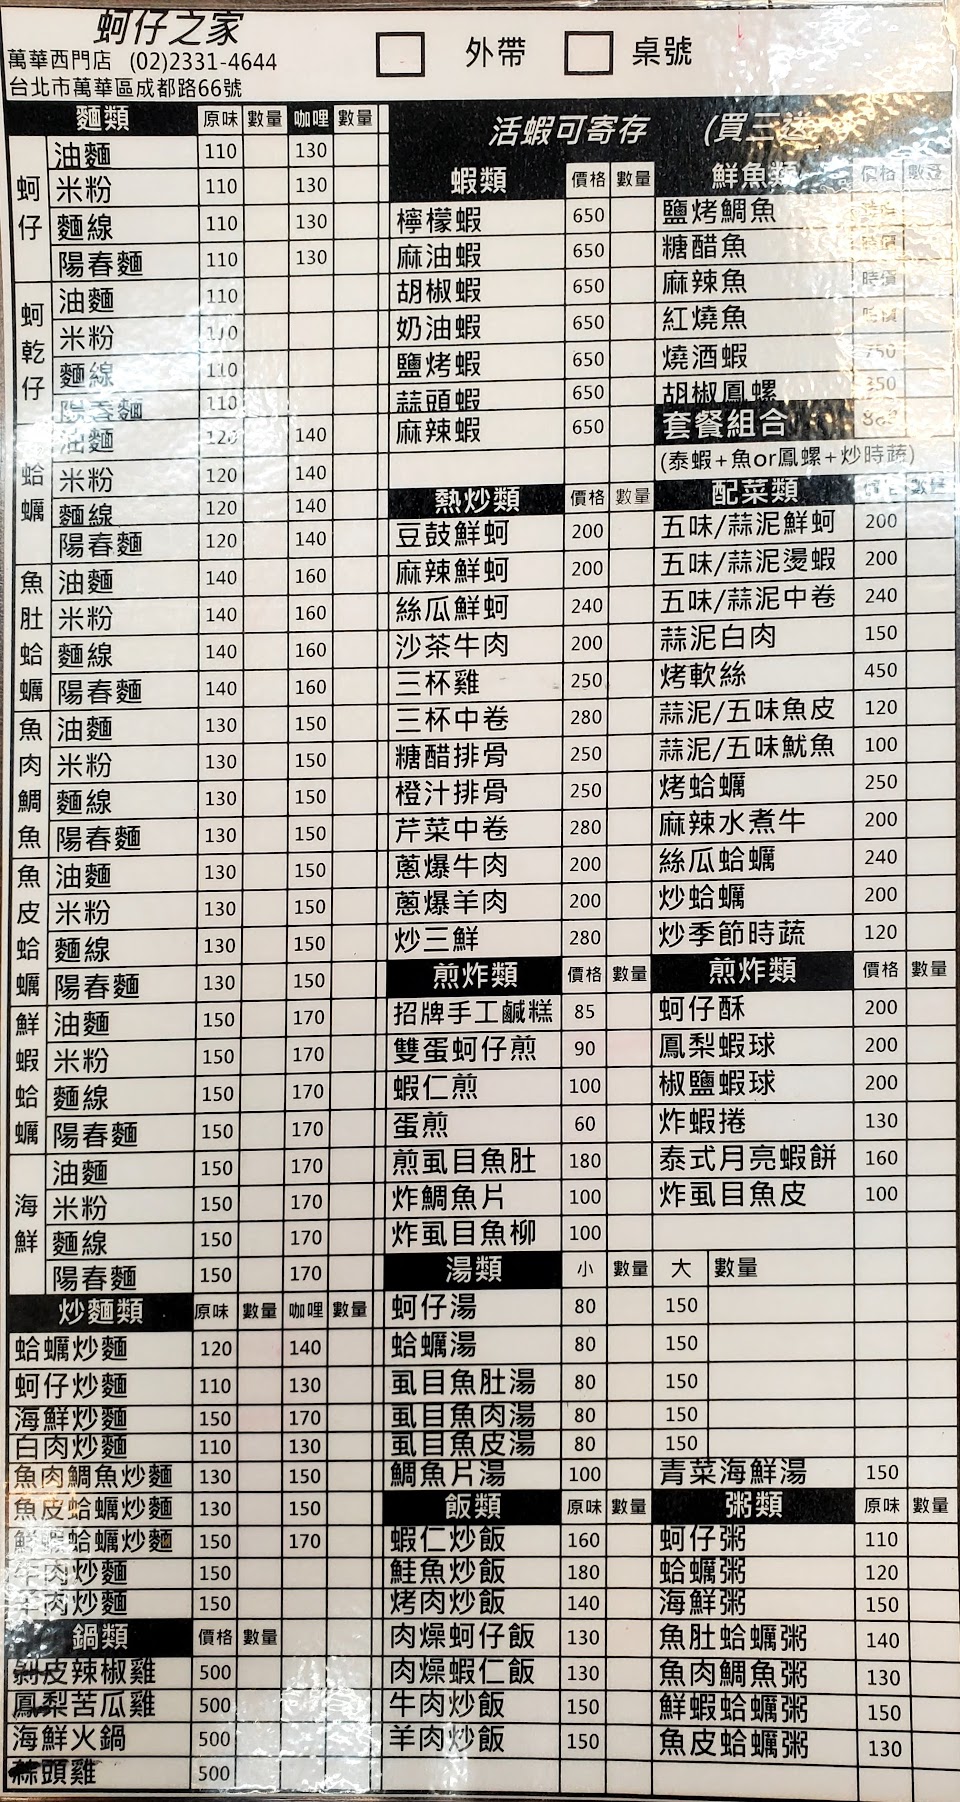 蚵仔之家
萬華西門店 (02)2331-4644
台北市萬華區成都路66號
外帶 桌號
麵類 原味 數量 咖哩 數量
蚵仔
油麵 110 130
米粉 110 130
麵線 110 130
陽春麵 110 130
蚵乾仔
油麵 110
米粉 110
麵線 110
陽春麵 110
蛤蠣
油麵 120 140
米粉 120 140
麵線 120 140
陽春麵 120 140
魚肚蛤蠣
油麵 140 160
米粉 140 160
麵線 140 160
陽春麵 140 160
魚肉鯛魚
油麵 130 150
米粉 130 150
麵線 130 150
陽春麵 130 150
魚皮蛤蠣
油麵 130 150
米粉 130 150
麵線 130 150
陽春麵 130 150
鮮蝦蛤蠣
油麵 150 170
米粉 150 170
麵線 150 170
陽春麵 150 170
海鮮
油麵 150 170
米粉 150 170
麵線 150 170
陽春麵 150 170
炒麵類 原味 數量 咖哩 數量
蛤蠣炒麵 120 140
蚵仔炒麵 110 130
海鮮炒麵 150 170
白肉炒麵 110 130
魚肉鯛魚炒麵 130 150
魚皮蛤蠣炒麵 130 150
鮮蝦蛤蠣炒麵 150 170
牛肉炒麵 150
羊肉炒麵 150
鍋類 價格 數量
剝皮辣椒雞 500
鳳梨苦瓜雞 500
海鮮火鍋 500
蒜頭雞 500
活蝦可寄存 (買三送
蝦類 價格 數量
檸檬蝦 650
麻油蝦 650
胡椒蝦 650
奶油蝦 650
鹽烤蝦 650
蒜頭蝦 650
麻辣蝦 650
熱炒類 價格 數量
豆鼓鮮蚵 200
麻辣鮮蚵 200
絲瓜鮮蚵 240
沙茶牛肉 200
三杯雞 250
三杯中卷 280
糖醋排骨 250
橙汁排骨 250
芹菜中卷 280
蔥爆牛肉 200
蔥爆羊肉 200
炒三鮮 280
煎炸類 價格 數量
招牌手工鹹糕 85
雙蛋蚵仔煎 90
蝦仁煎 100
蛋煎 60
煎虱目魚肚 180
炸鯛魚片 100
炸虱目魚柳 100
湯類 小 數量 大 數量
蚵仔湯 80 150
蛤蠣湯 80 150
虱目魚肚湯 80 150
虱目魚肉湯 80 150
虱目魚皮湯 80 150
鯛魚片湯 100
飯類 原味 數量
蝦仁炒飯 160
鮭魚炒飯 180
烤肉炒飯 140
肉燥蚵仔飯 130
肉燥蝦仁飯 130
牛肉炒飯 150
羊肉炒飯 150
鮮魚類 價格 數量
鹽烤鯛魚
糖醋魚
麻辣魚 時價
紅燒魚
燒酒蝦 750
胡椒鳳螺 350
套餐組合
(泰蝦+魚or鳳螺+炒時蔬)
配菜類 價格 數量
五味/蒜泥鮮蚵 200
五味/蒜泥燙蝦 200
五味/蒜泥中卷 240
蒜泥白肉 150
烤軟絲 450
蒜泥/五味魚皮 120
蒜泥/五味魷魚 100
烤蛤蠣 250
麻辣水煮牛 200
絲瓜蛤蠣 240
炒蛤蠣 200
炒季節時蔬 120
煎炸類 價格 數量
蚵仔酥 200
鳳梨蝦球 200
椒鹽蝦球 200
炸蝦捲 130
泰式月亮蝦餅 160
炸虱目魚皮 100
青菜海鮮湯 150
粥類 原味 數量
蚵仔粥 110
蛤蠣粥 120
海鮮粥 150
魚肚蛤蠣粥 140
魚肉鯛魚粥 130
鮮蝦蛤蠣粥 150
魚皮蛤蠣粥 130